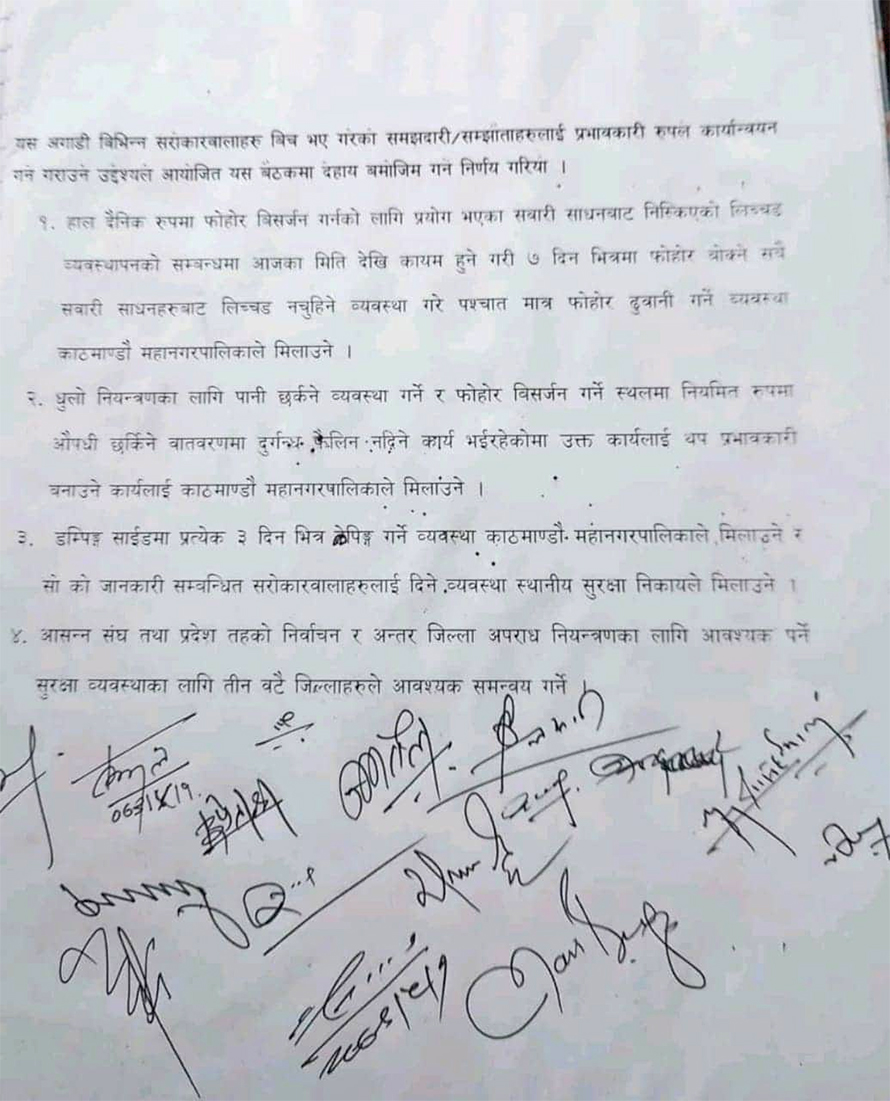 यस अगाडी विभिन्न सरोकारवालाहरु बिच भए गरेका समझदारी/सम्झौताहरुलाई प्रभावकारी रुपले कार्यान्वयन
गर्न गराउने उद्देश्यले आयोजित यस बैठकमा देहाय बमोजिम गर्ने निर्णय गरियो ।
१. हाल दैनिक रुपमा फोहोर बिसर्जन गर्नको लागि प्रयोग भएका सवारी साधनबाट निस्किएको लिच्चड
व्यवस्थापनको सम्बन्धमा आजका मिति देखि कायम हुने गरी ७ दिन भित्रमा फोहोर बोक्ने सबै
सवारी साधनहरुबाट लिच्चड नचुहिने व्यवस्था गरे पश्चात मात्र फोहोर ढुवानी गर्ने व्यवस्था
काठमाण्डौ महानगरपालिकाले मिलाउने ।
२. धुलो नियन्त्रणका लागि पानी छर्कने व्यवस्था गर्ने र फोहोर बिसर्जन गर्ने स्थलमा नियमित रुपमा
औषधी छर्किने वातवरणमा दुर्गन्ध फैलिन नदिने कार्य भईरहेकोमा उक्त कार्यलाई थप प्रभावकारी
बनाउने कार्यलाई काठमाण्डौ महानगरपालिकाले मिलाउने ।
३. डम्पिङ्ग साईडमा प्रत्येक ३ दिन भित्र केपिङ्ग गर्ने व्यवस्था काठमाण्डौ महानगरपालिकाले मिलाउने र
सो को जानकारी सम्बन्धित सरोकारवालाहरुलाई दिने व्यवस्था स्थानीय सुरक्षा निकायले मिलाउने ।
४. आसन्न संघ तथा प्रदेश तहको निर्वाचन र अन्तर जिल्ला अपराध नियन्त्रणका लागि आवश्यक पर्ने
सुरक्षा व्यवस्थाका लागि तीन वटै जिल्लाहरुले आवश्यक समन्वय गर्ने ।